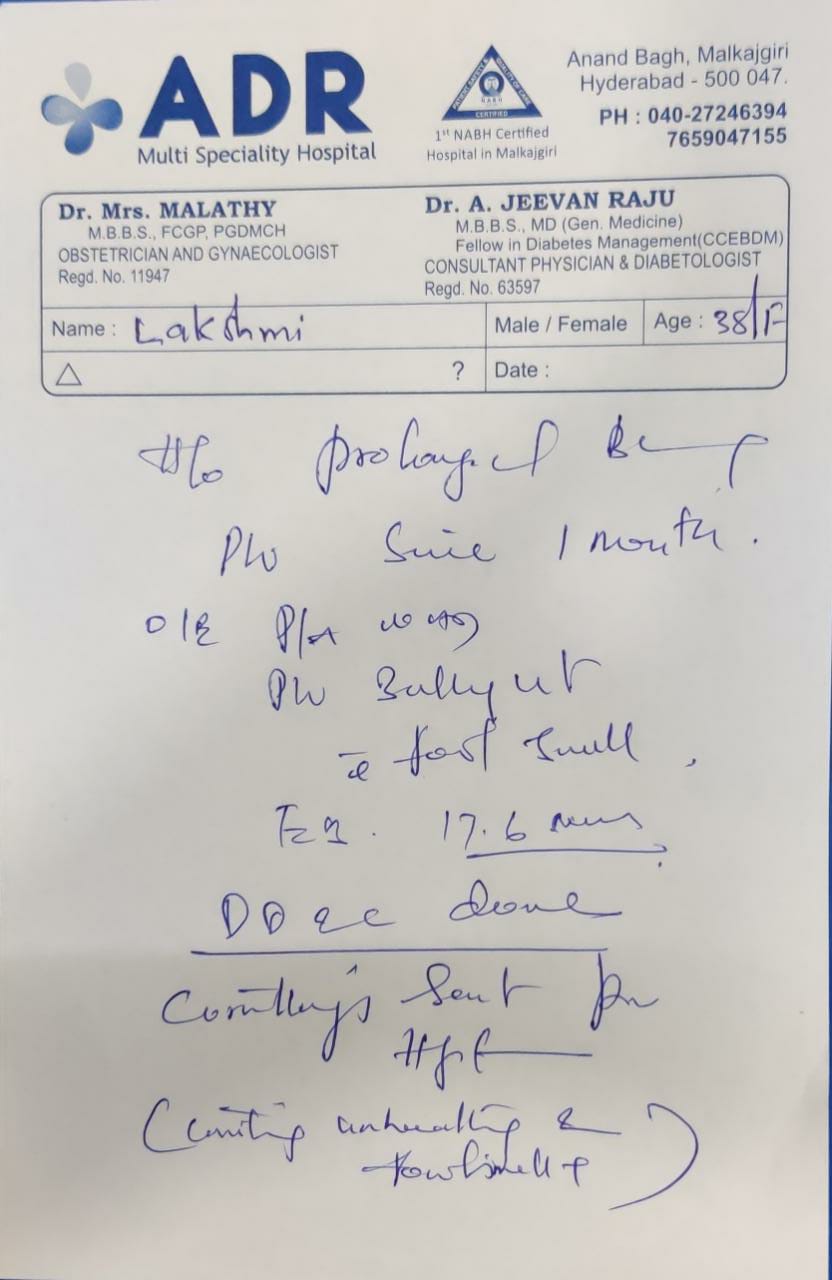 ADR
Multi Speciality Hospital
PATIENT SAFETY & QUALITY OF CARE
NABH
CERTIFIED
1st NABH Certified
Hospital in Malkajgiri
Anand Bagh, Malkajgiri
Hyderabad - 500 047.
PH : 040-27246394
7659047155
Dr. Mrs. MALATHY
M.B.B.S., FCGP, PGDMCH
OBSTETRICIAN AND GYNAECOLOGIST
Regd. No. 11947
Dr. A. JEEVAN RAJU
M.B.B.S., MD (Gen. Medicine)
Fellow in Diabetes Management(CCEBDM)
CONSULTANT PHYSICIAN & DIABETOLOGIST
Regd. No. 63597
Name : Lakshmi
Male / Female
Age : 38/F
△ ?
Date :
H/o prolonged
P/V Since 1 month.
O/E P/A
P/V Bulky ut
c̄ foul smell.
17.6 mms
D & C done
Sent for
HPE
( & foul smell + )